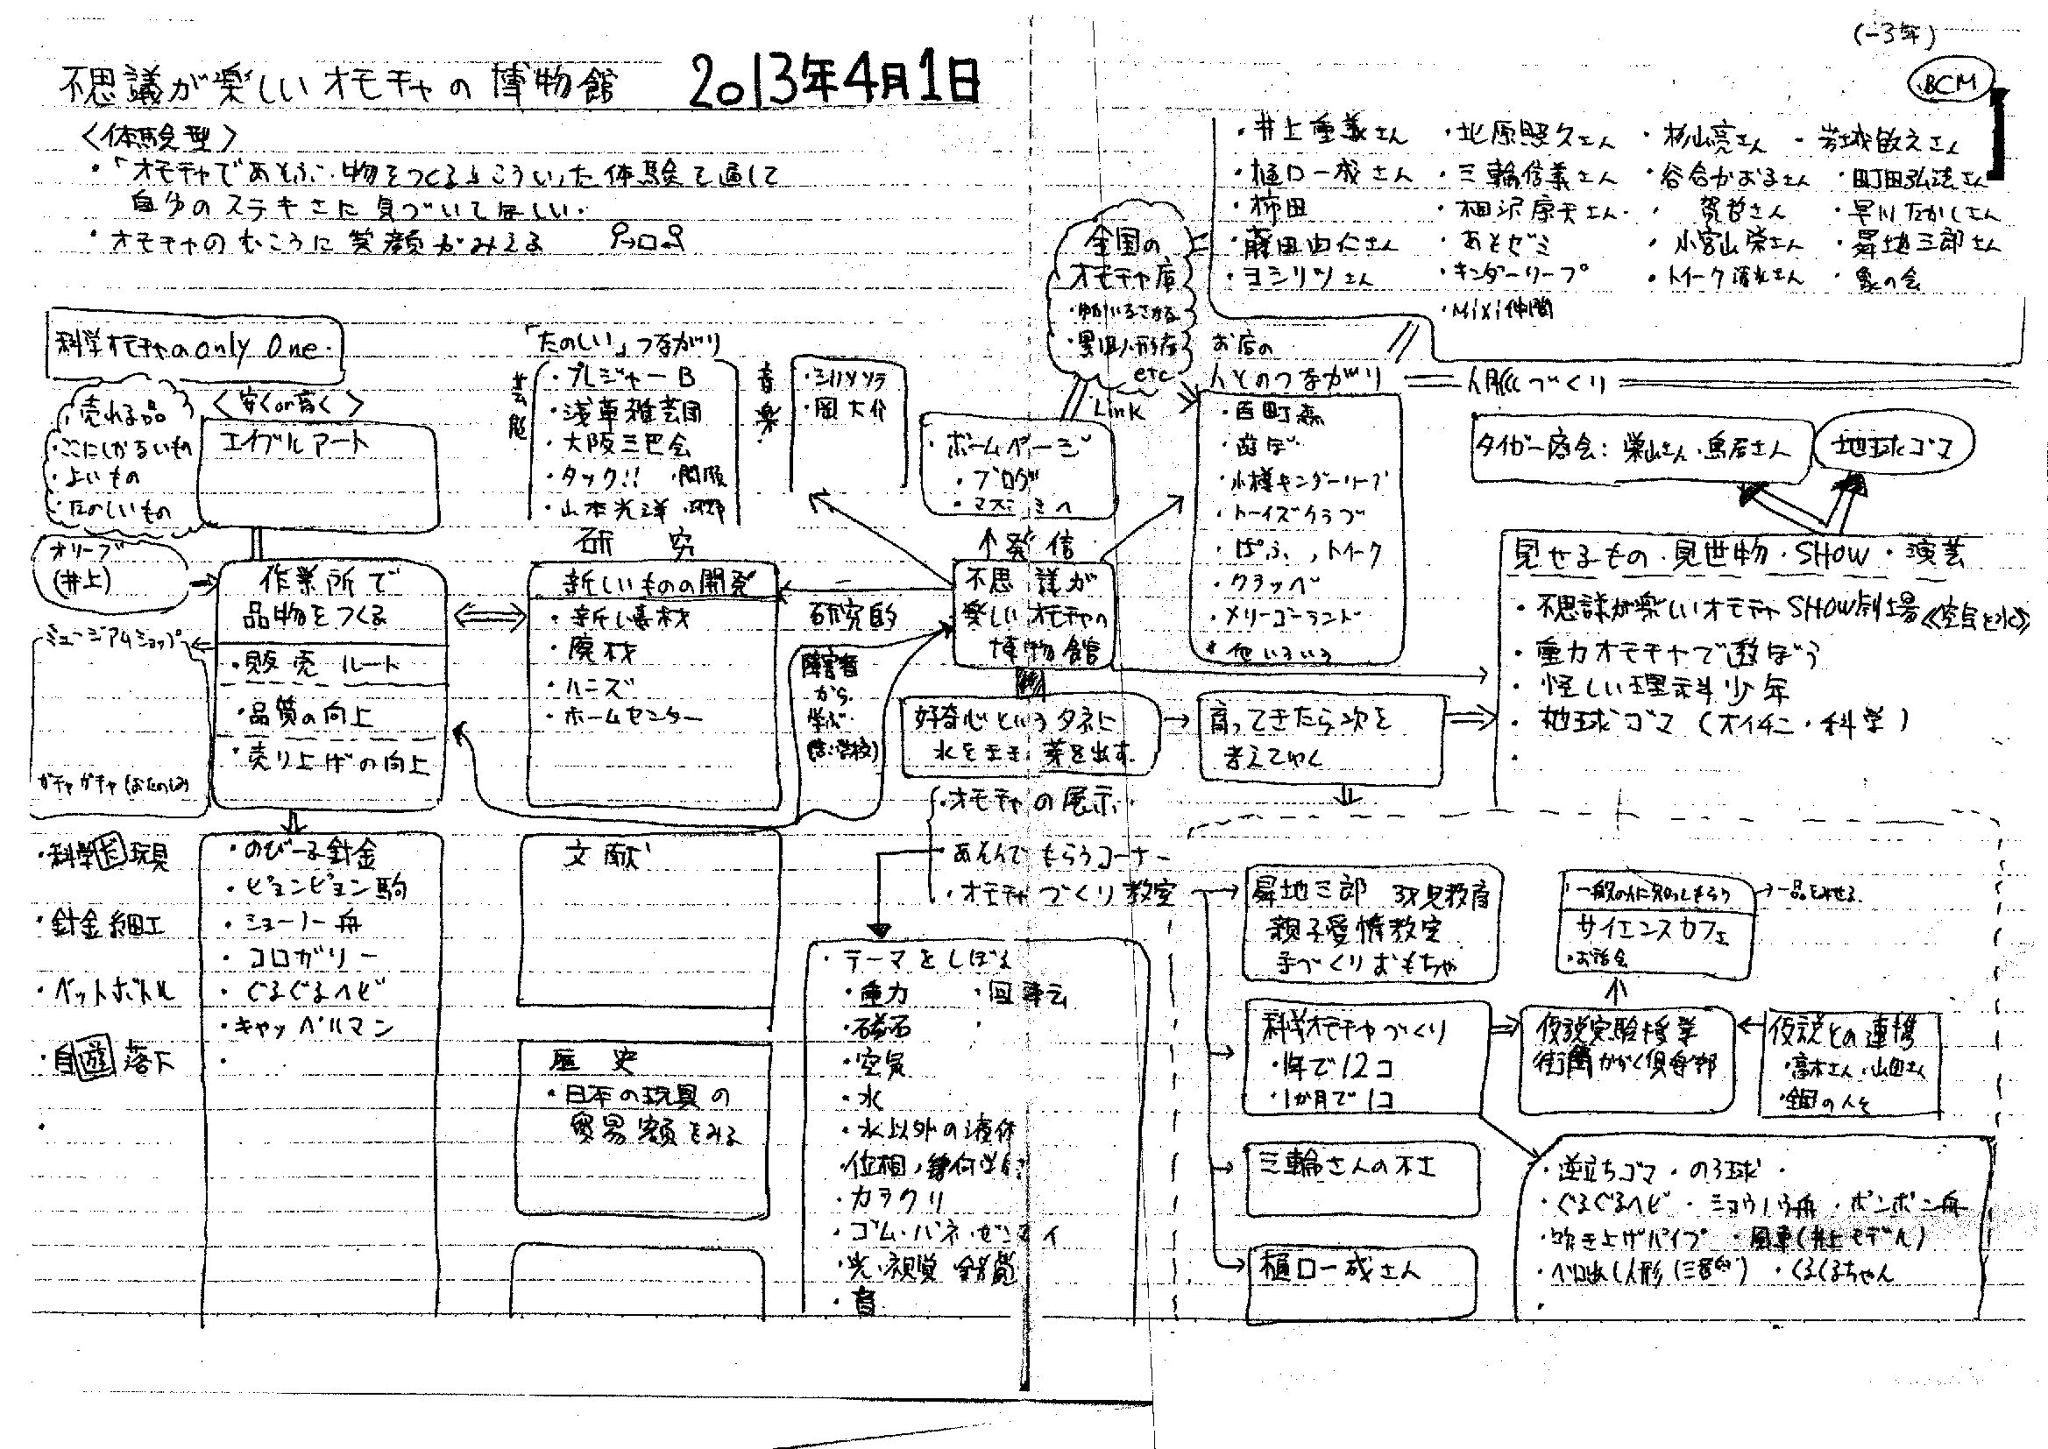 (-3年)
BCM
不思議が楽しいオモチャの博物館 2013年4月1日
<体験型>
・「オモチャであそぶ・物をつくる」こういった体験を通して
自分のステキさに気づいてほしい.
・オモチャのむこうに笑顔がみえる
・井上重義さん ・北原照久さん ・杉山亮さん ・芳城敏えさん
・樋口一成さん ・三輪信義さん ・谷合かおるさん ・町田弘法さん
・柿田 ・相沢康夫さん ・ 賀哲さん ・早川たかしさん
・藤田由仁さん ・あそゼミ ・小宮山栄さん ・昇地三郎さん
・ヨシリツさん ・キンダーリープ ・象の会
・Mixi仲間
全国の
オモチャ庫
etc
Link
お店の
人とのつながり
人脈づくり
・百町森
・遊ぼ
・小樽キンダーリープ
・トーイズクラブ
・ぱふ、トイーク
・クラッペ
・メリーゴーランド
・他いろいろ
タイガー商会:巣山さん・鳥居さん
地球ゴマ
科学オモチャのonly One.
・売れる品
・ここにしかないもの
・よいもの
・たのしいもの
<安くor高く>
エイブルアート
「たのしい」つながり
芸能
・プレジャーB
・浅草雑芸団
・大阪三巴会
・タック!!
・山本光洋
音楽
・岡大介
・ホームページ
・ブログ
・マスコミへ
↑発信
不思議が
楽しいオモチャの
博物館
オリーブ
(井上)
作業所で
品物をつくる
・販売ルート
・品質の向上
・売り上げの向上
ミュージアムショップ
ガチャガチャ(おたのしみ)
研究
新しいものの開発
・新しい素材
・廃材
・ハニズ
・ホームセンター
研究的
障害者
から
学ぶ
好奇心というタネに
水をまき、芽を出す.
育ってきたら次を
考えてゆく
見せるもの・見世物・SHOW・演芸
・不思議が楽しいオモチャSHOW劇場《空気と水》
・重力オモチャで遊ぼう
・怪しい理科少年
・地球ゴマ(オイチニ・科学)
・オモチャの展示
・あそんでもらうコーナー
・オモチャづくり教室
・科学的玩具
・針金細工
・ペットボトル
・自遊落下
・のびーる針金
・ピョンピョン駒
・ショーノー舟
・コロガリー
・ぐるぐるヘビ
・キャッペルマン
文献
歴史
・日本の玩具の
貿易額をみる
・テーマをしぼる
・重力 ・回転
・磁石
・空気
・水
・水以外の液体
・カラクリ
・ゴム・バネ・ゼンマイ
・光・視覚 錯覚
・音
昇地三郎 3才児教育
親子愛情教室
手づくりおもちゃ
・一般の人に知ってもらう
→一品をみせる
サイエンスカフェ
・お話会
科学オモチャづくり
・1年で12コ
・1か月で1コ
仮説実験授業
街角かがく倶楽部
仮説との連携
・高木さん・山田さん
・全国の人々
三輪さんの不士
樋口一成さん
・逆立ちゴマ ・のろ球
・ぐるぐるヘビ ・ショウノウ舟 ・ポンポン舟
・吹き上げパイプ ・風車(井上モデル)
・ベロ出し人形(三番叟) ・くるくるちゃん